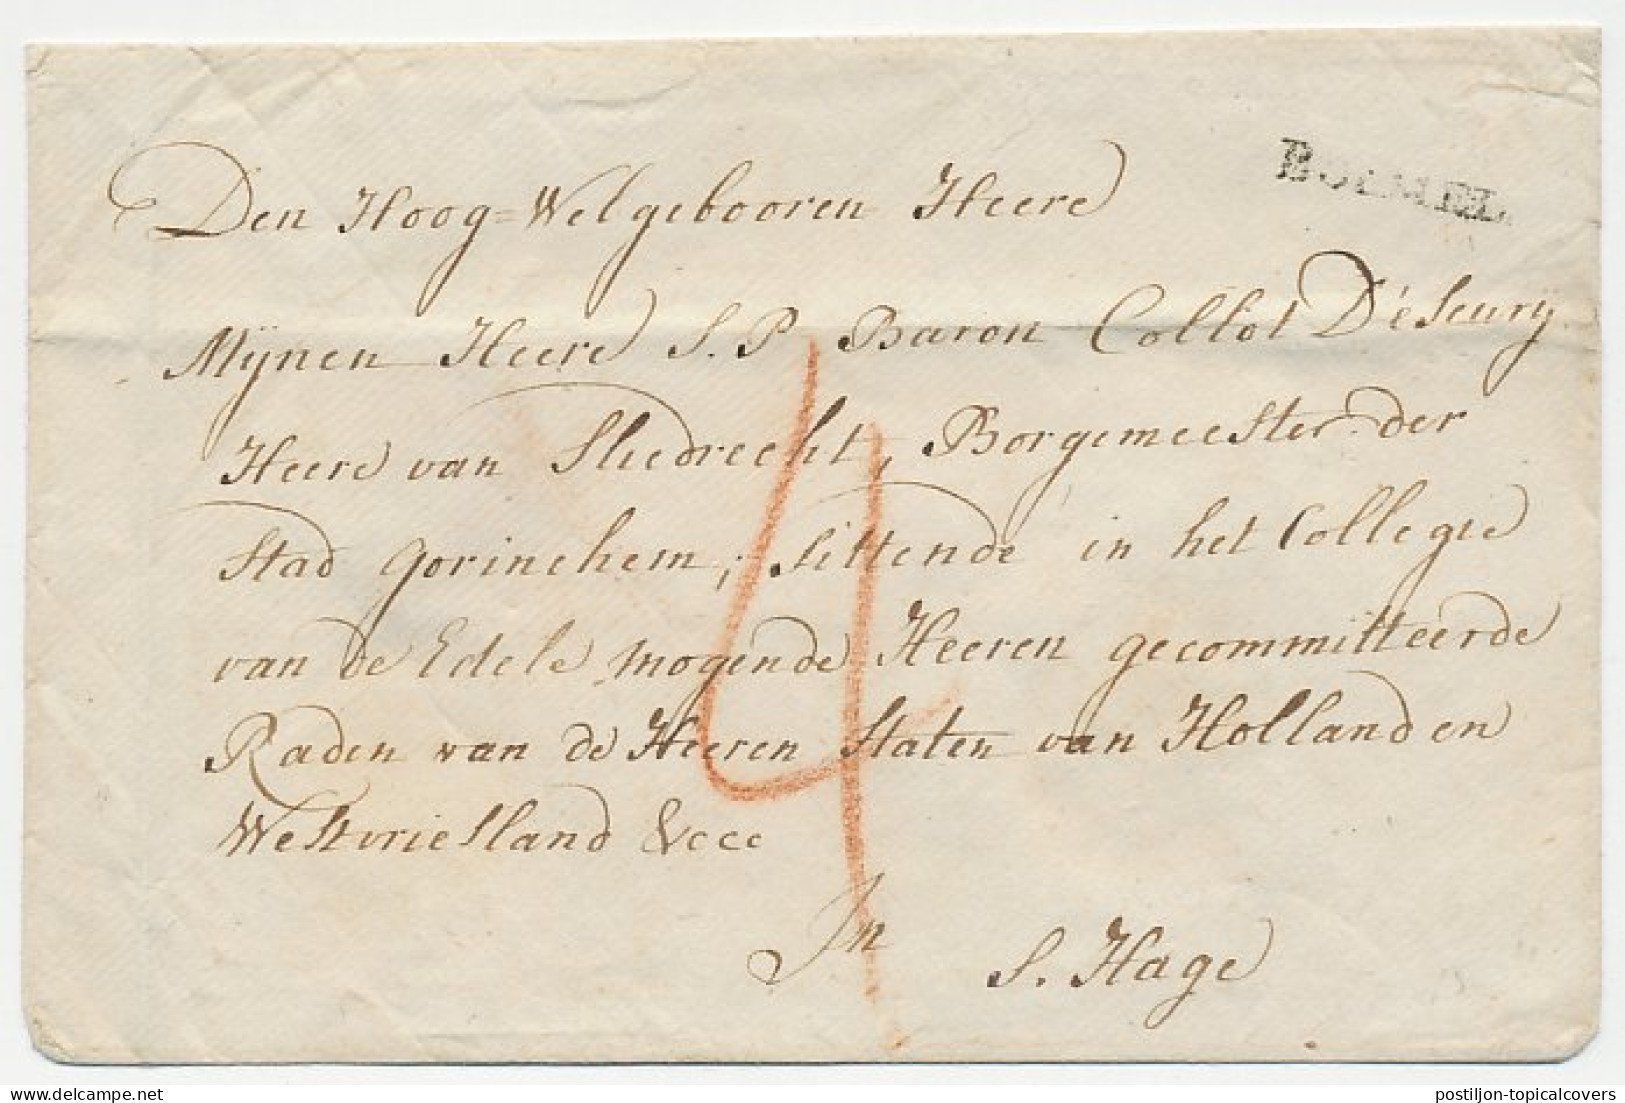 BOMMEL
Den Hoog=Welgebooren Heere
Mijnen Heere S. P. Baron Collot D'éscurij
Heere van Sliedrecht, Borgemeester der
Stad Gorinchem, sittende in het Collegie
van de Edele mogende Heeren gecommitteerde
Raden van de Heeren Staten van Holland en
Westvriesland &ccc
In
S. Hage
4
postiljon-topicalcovers